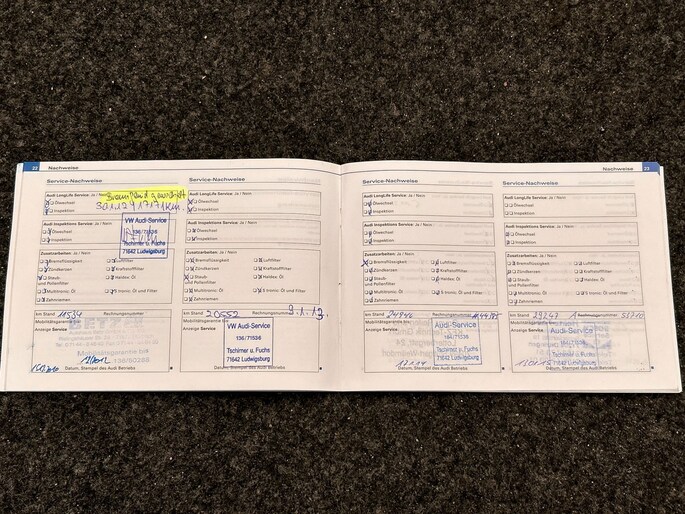 22 Nachweise
Service-Nachweise
Audi LongLife Service: Ja / Nein
Ölwechsel
Inspektion
Audi Inspektions Service: Ja / Nein
Ölwechsel
Inspektion
VW Audi-Service
136/71536
Tschirner u. Fuchs
71642 Ludwigsburg
Zusatzarbeiten: Ja / Nein
Bremsflüssigkeit
Luftfilter
Zündkerzen
Kraftstofffilter
Staub-
und Pollenfilter
Haldex: Öl
Multitronic: Öl
S tronic: Öl und Filter
Zahnriemen
km Stand 11584 Rechnungsnummer
Mobilitätsgarantie bis:
Anzeige Service
BETZ
Mobilitätsgarantie bis
Datum, Stempel des Audi Betriebs
Audi LongLife Service: Ja / Nein
Ölwechsel
Inspektion
Audi Inspektions Service: Ja / Nein
Ölwechsel
Inspektion
Zusatzarbeiten: Ja / Nein
Bremsflüssigkeit
Luftfilter
Zündkerzen
Kraftstofffilter
Staub-
und Pollenfilter
Haldex: Öl
Multitronic: Öl
S tronic: Öl und Filter
Zahnriemen
km Stand 20552 Rechnungsnummer
9.1.13
Mobilitätsgarantie bis:
Anzeige Service
VW Audi-Service
136/71536
Tschirner u. Fuchs
71642 Ludwigsburg
Datum, Stempel des Audi Betriebs
Nachweise 23
Service-Nachweise
Audi LongLife Service: Ja / Nein
Ölwechsel
Inspektion
Audi Inspektions Service: Ja / Nein
Ölwechsel
Inspektion
Zusatzarbeiten: Ja / Nein
Bremsflüssigkeit
Luftfilter
Zündkerzen
Kraftstofffilter
Staub-
und Pollenfilter
Haldex: Öl
Multitronic: Öl
S tronic: Öl und Filter
Zahnriemen
km Stand 24946 Rechnungsnummer
Mobilitätsgarantie bis:
Anzeige Service
Audi-Service
Tschirner u. Fuchs
71642 Ludwigsburg
Datum, Stempel des Audi Betriebs
Service-Nachweise
Audi LongLife Service: Ja / Nein
Ölwechsel
Inspektion
Audi Inspektions Service: Ja / Nein
Ölwechsel
Inspektion
Zusatzarbeiten: Ja / Nein
Bremsflüssigkeit
Luftfilter
Zündkerzen
Kraftstofffilter
Staub-
und Pollenfilter
Haldex: Öl
Multitronic: Öl
S tronic: Öl und Filter
Zahnriemen
km Stand 29247 Rechnungsnummer
Mobilitätsgarantie bis:
Anzeige Service
Audi-Service
Tschirner u. Fuchs
71642 Ludwigsburg
Datum, Stempel des Audi Betriebs